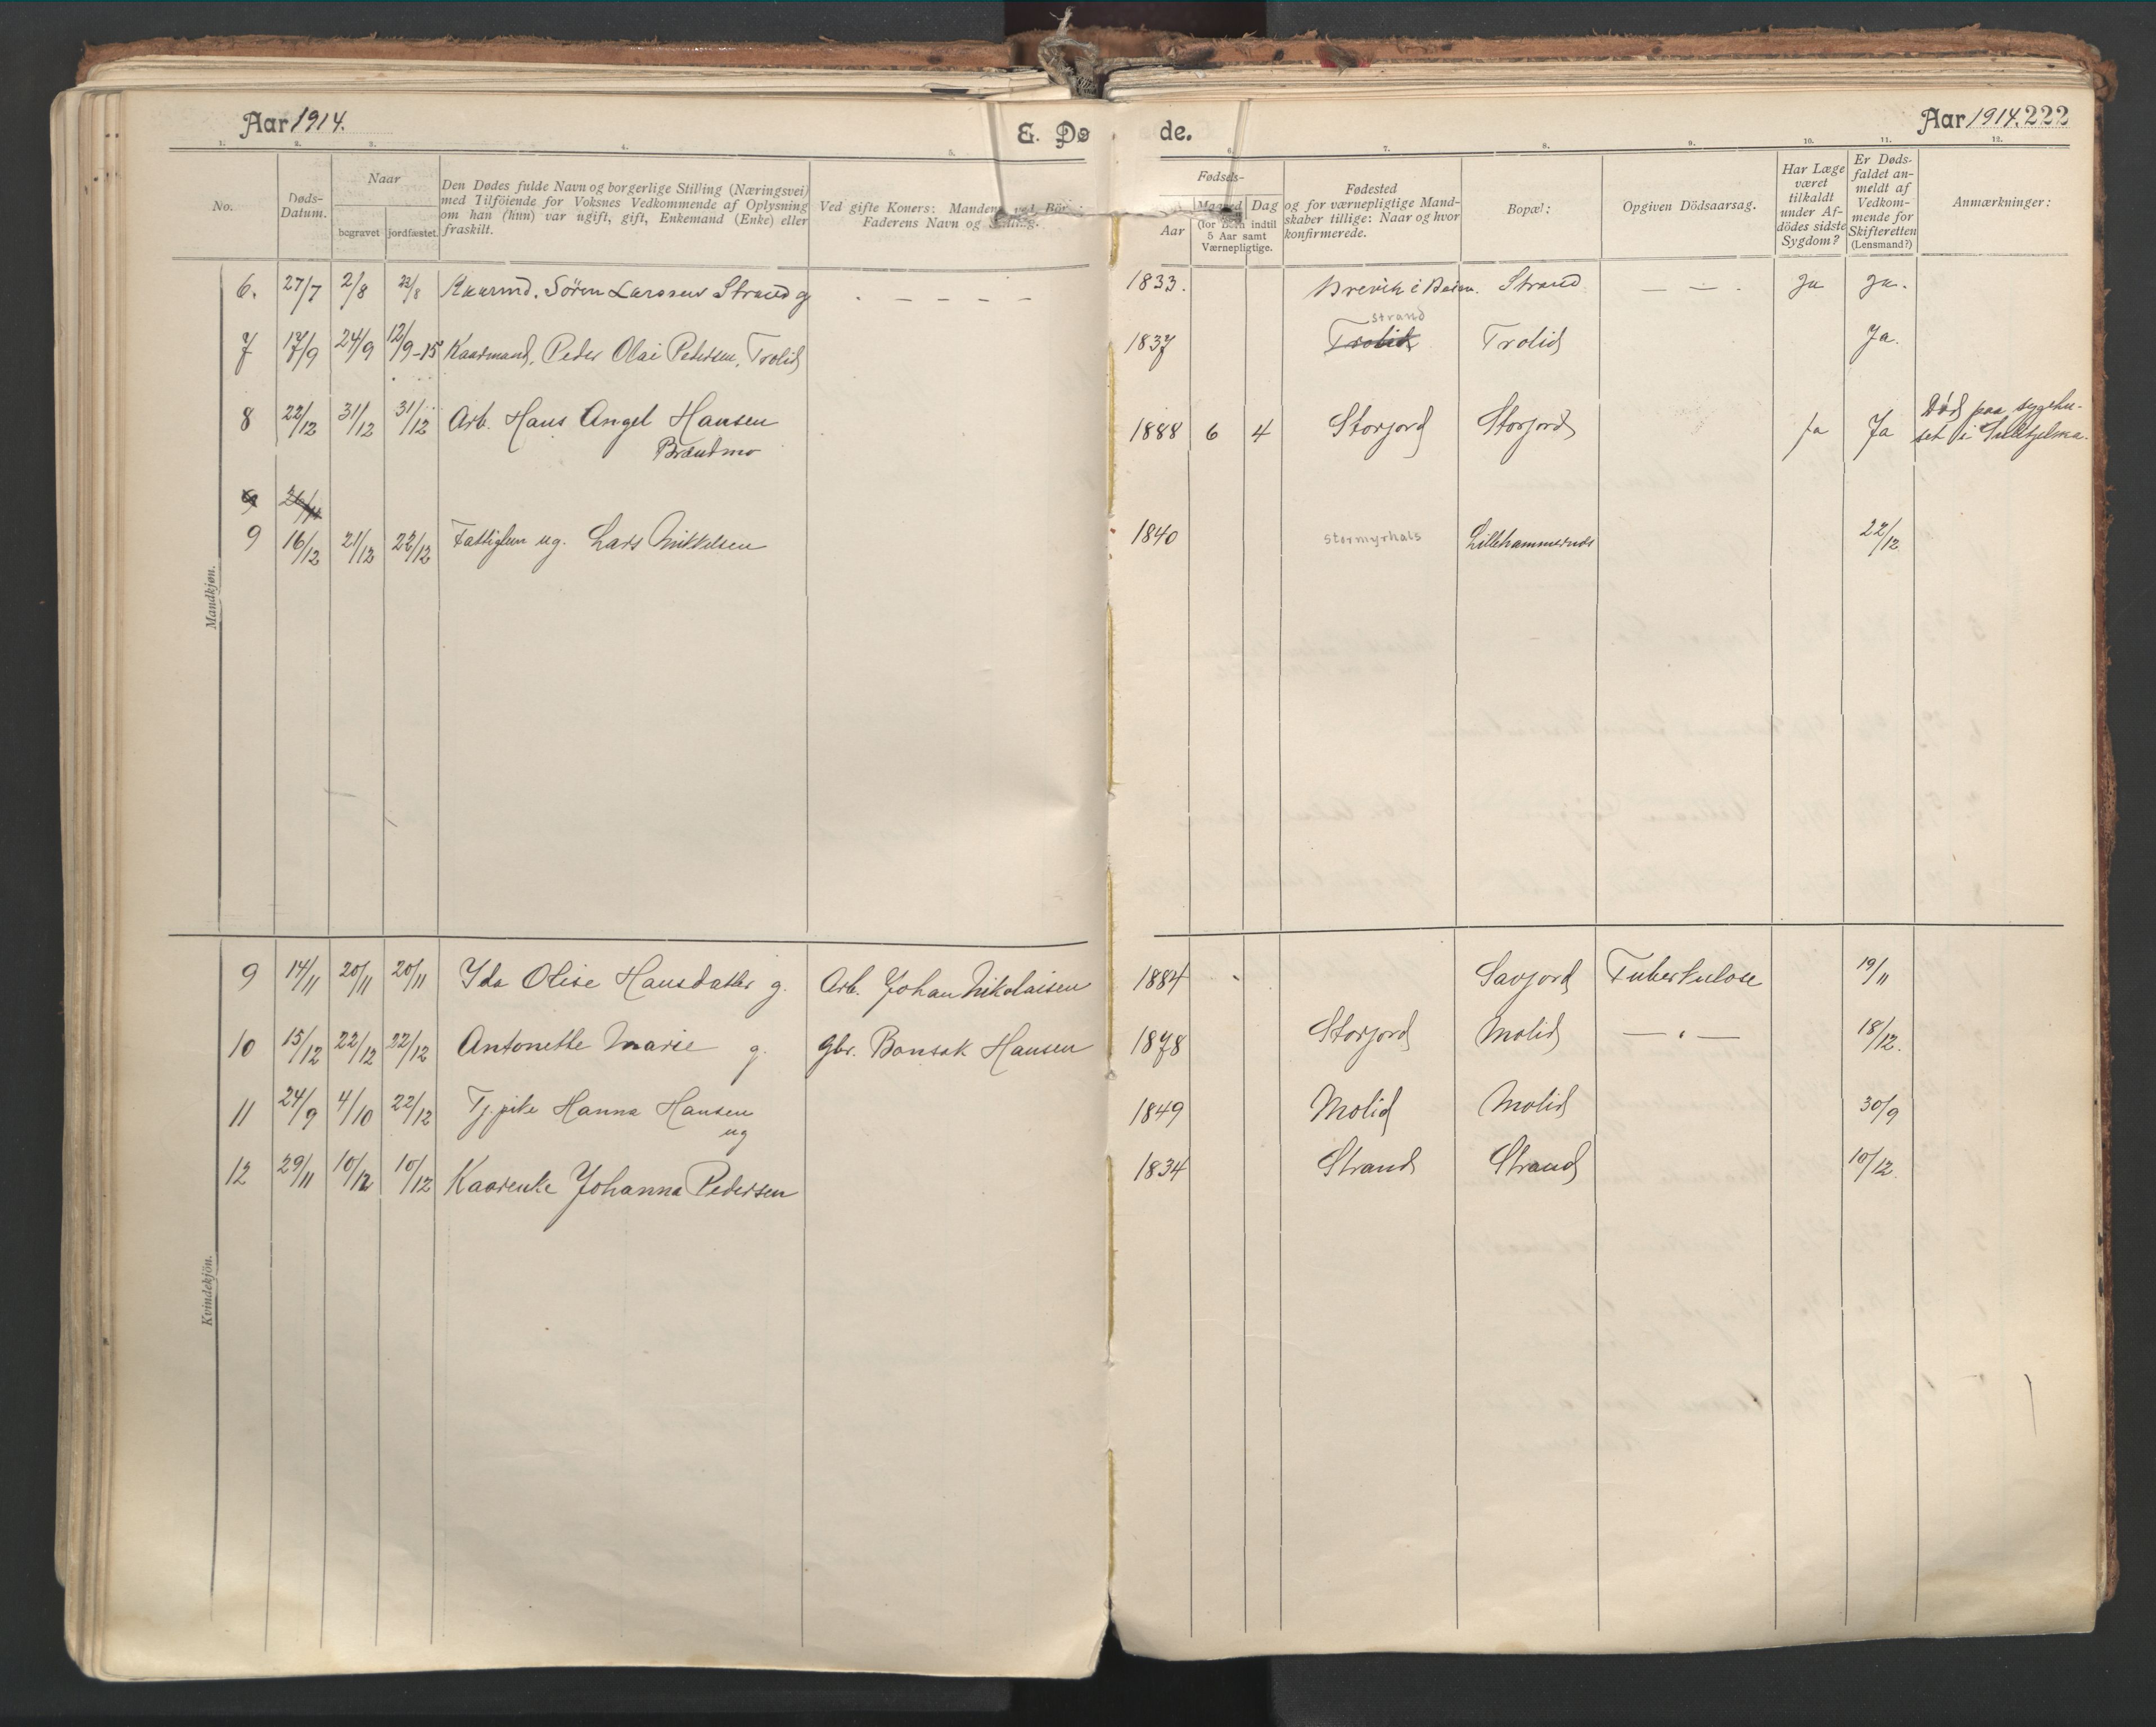 Aar 1914.
E. Dø de.
Aar 1914. 222
1. 2. 3. 4. 5. 6. 7. 8. 9. 10. 11. 12.
No.
Døds-
Datum.
Naar
begravet
jordfæstet.
Den Dødes fulde Navn og borgerlige Stilling (Næringsvei)
med Tilföiende for Voksnes Vedkommende af Oplysning
om han (hun) var ugift, gift, Enkemand (Enke) eller
fraskilt.
Ved gifte Koners: Mandens, ved Börns:
Faderens Navn og Stilling.
Fødsels-
Aar
Maaned
Dag
(for Børn indtil
5 Aar samt
Værnepligtige.
Fødested
og for værnepligtige Mand-
skaber tillige: Naar og hvor
konfirmerede.
Bopæl:
Opgiven Dödsaarsag.
Har Læge
været
tilkaldt
under Af-
dödes sidste
Sygdom?
Er Døds-
faldet an-
meldt af
Vedkom-
mende for
Skifteretten
(Lensmand?)
Anmærkninger:
Mandkjøn.
6. 27/7 2/8 22/8 Kaarmd. Sören Larssen Strand g . – – – – 1833. Brevik i Beiarn. Strand — — . Ja Ja.
strand
7 17/9 24/9 12/9-15 Kaarmand, Peder Olai Petersen, Trolid 1837 Trolid Trolid Ja.
8 22/12 31/12 31/12 Arb. Hans Angel Hansen 1888 6 4 Storjord Storjord Ja Ja Død paa sygehu-
Brændmo set i Sulitjelma.
9 26/11
9 16/12 21/12 22/12 Fattiglem ug. Lars Mikkelsen 1840 stormyrhals Lillehammernes 22/12
Kvindekjön.
9 14/11 20/11 20/11 Ida Olise Hansdatter g. Arb. Johan Nikolaisen 1884 Savjord Tuberkulose 19/11
10 15/12 22/12 22/12 Antonette Marie g. gbr. Bonsak Hansen 1878 Storjord Molid — " — 18/12.
11 24/9 4/10 22/12 Tj.pike Hanna Hansen 1849 Molid Molid 30/9
ug
12 29/11 10/12 10/12 Kaarenke Johanna Pedersen 1834 Strand Strand 10/12.